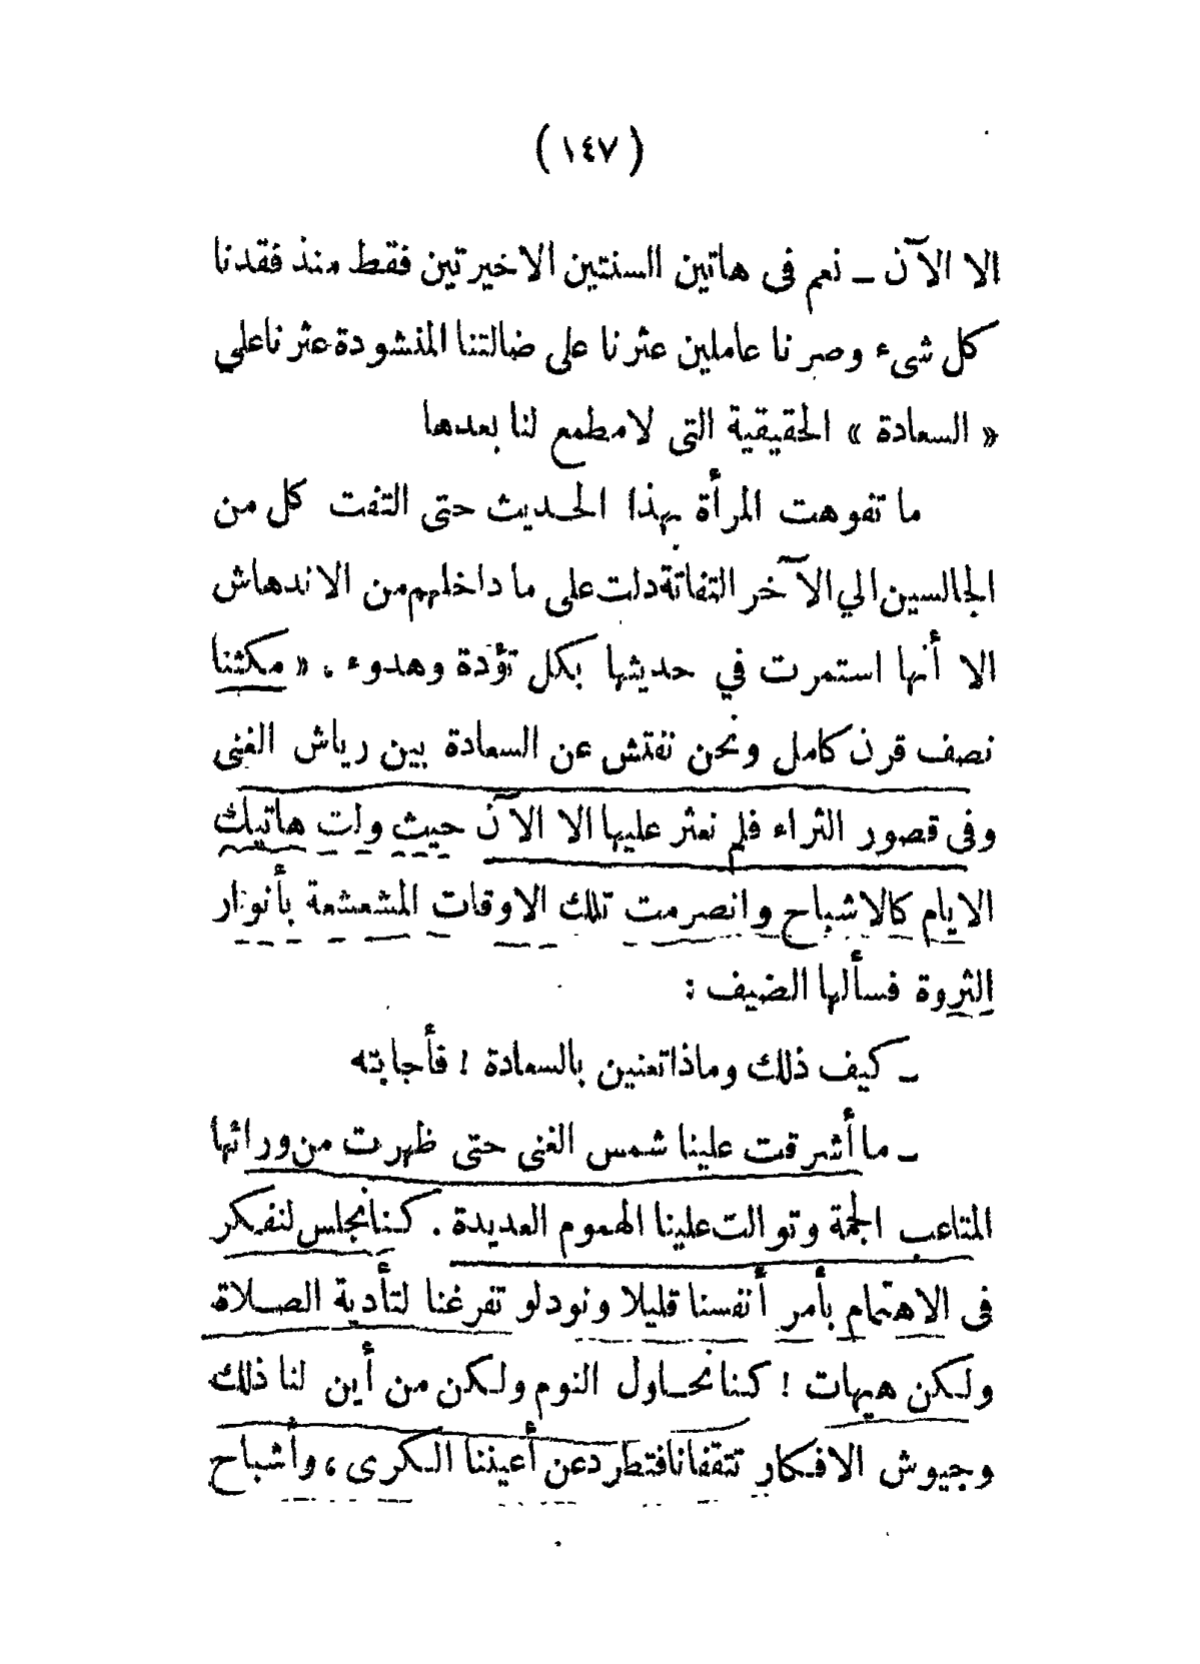 ( ١٤٧ )
الا الآن ـ نعم فى هاتين السنتين الاخيرتين فقط منذ فقدنا
كل شىء وصرنا عاملين عثرنا على ضالتنا المنشودة عثرنا علي
« السعادة » الحقيقية التى لا مطمع لنا بعدها
ما تفوهت المرأة بهذا الحديث حتى التفت كل من
الجالسين الي الآخر التفاتة دلت على ما داخلهم من الاندهاش
الا أنها استمرت في حديثها بكل تؤدة وهدوء . « مكثنا
نصف قرن كامل ونحن نفتش عن السعادة بين رياش الغنى
وفى قصور الثراء فلم نعثر عليها الا الآن حيث ولت هاتيك
الايام كالاشباح وانصرمت تلك الاوقات المشعشعة بأنوار
الثروة فسألها الضيف :
ـ كيف ذلك وماذا تعنين بالسعادة ! فأجابته
ـ ما أشرقت علينا شمس الغنى حتى ظهرت من ورائها
المتاعب الجمة وتوالت علينا الهموم العديدة . كنا نجلس لنفكر
فى الاهتمام بأمر أنفسنا قليلا ونود لو تفرغنا لتأدية الصلاة
ولكن هيهات ! كنا نحاول النوم ولكن من أين لنا ذلك
وجيوش الافكار تتقفانا فتطرد عن أعيننا الكرى ، وأشباح